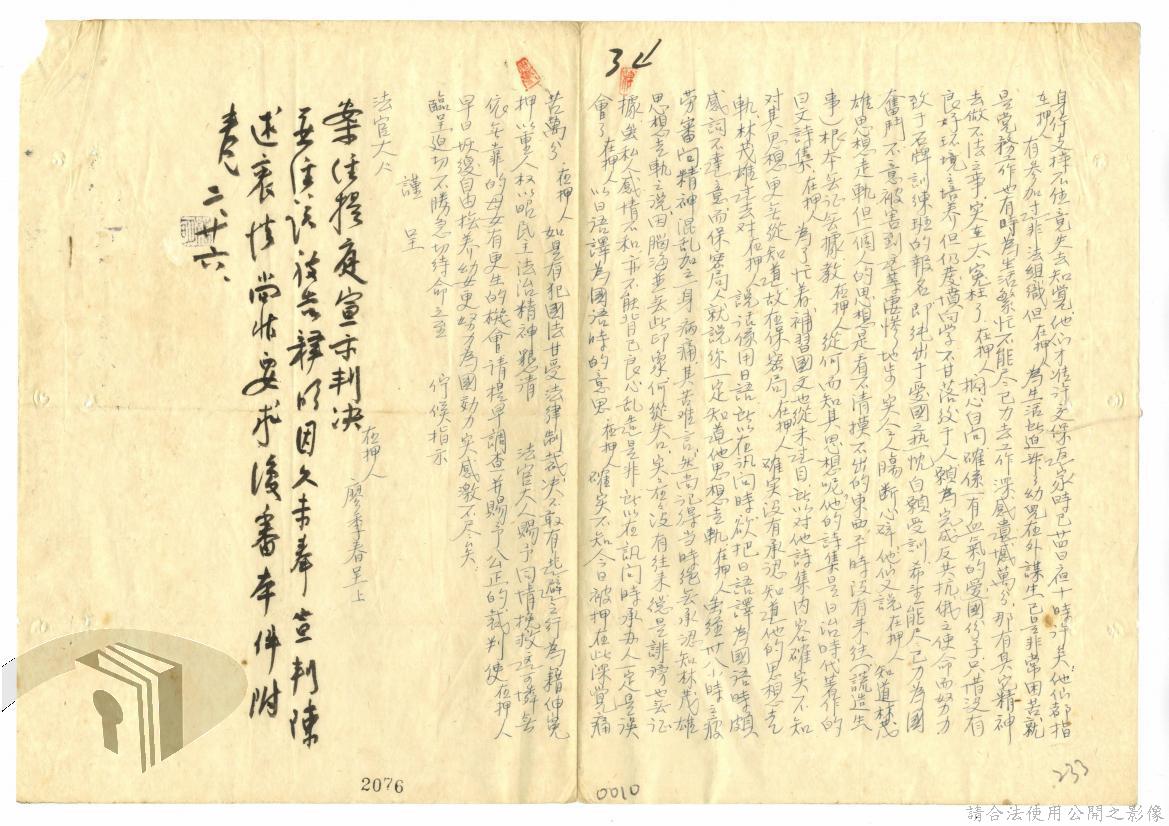 34
身待支持不住竟失去知覺他们才准許交保存家時已苗日夜十時許矣他仙都指
在押人有參加過非法組織但在押人為生活所迫將幼兒在外謀生已是非常困苦就
是党務工作也有時為生活繁忙不能尽己力去工作深感遺憾萬分那有其它精神
去做不法之事实在太冤枉了在押人捫心自问確係一有血氣的愛國份子只惜没有
良好环境之培养但仍发憤向学不甘落後于人願為完成反共抗俄之使命而努力
致于石牌訓練班的報名即純出于愛國熱忱自願受訓希望能尽己力為國
奮鬥不意被害到這等凄惨之地步实令人腸断心碎他们又說在押人知道林茂
雄思想走軌但一個人的思想是看不清摸不出的東西平時没有來往(謊造生
事)根本無証無據教在押人從何而知其思想呢他的詩集是日治時代著作的
日文詩集在押人為了忙着補習國文也從未过目所以对他詩集内容確实不知
对其思想更無從知道故在保密局在押人確实没有承認知道他的思想走
軌林茂雄过去对在押人說話像用日語所以在訊问時欲把日語譯為國語時頗
感詞不達意而保密局人就說你一定知道他思想走軌在押人虽經卅八小時之疲
劳審问精神混乱加之身病痛其苦难言然尚记得当時绝無承認知林茂雄
思想走軌之說因腦海並無此印象何從告之矣在没有往來總是誹謗也無証
據幾私人感情不和亦不能背己良心乱造是非所以在訊问時承办人一定是误
會了在押人以日語譯為國語時的意思在押人確实不知今日被押在此深覺痛
苦萬分在押人如是有犯國法甘受法律制裁決不敢有逃避之行為藉伸冤
押以重人权以昭民主法治精神懇请法官大人賜予同情挽救這可憐無
依無靠的母女有更生的機會请提早調查並賜予公正的裁判使在押人
早日恢復自由扶养幼女更努力為國効力实感激不尽矣
臨呈迫切不勝急切待命之至佇候指示
謹呈
法官大人
在押人廖季春呈上
案经提庭宣示判决
至注该被告释明因久未奉宣判陳
述衷情尚非要求復審本件附
卷
二、廿六、
2076
0010
233
請合法使用公開之影像